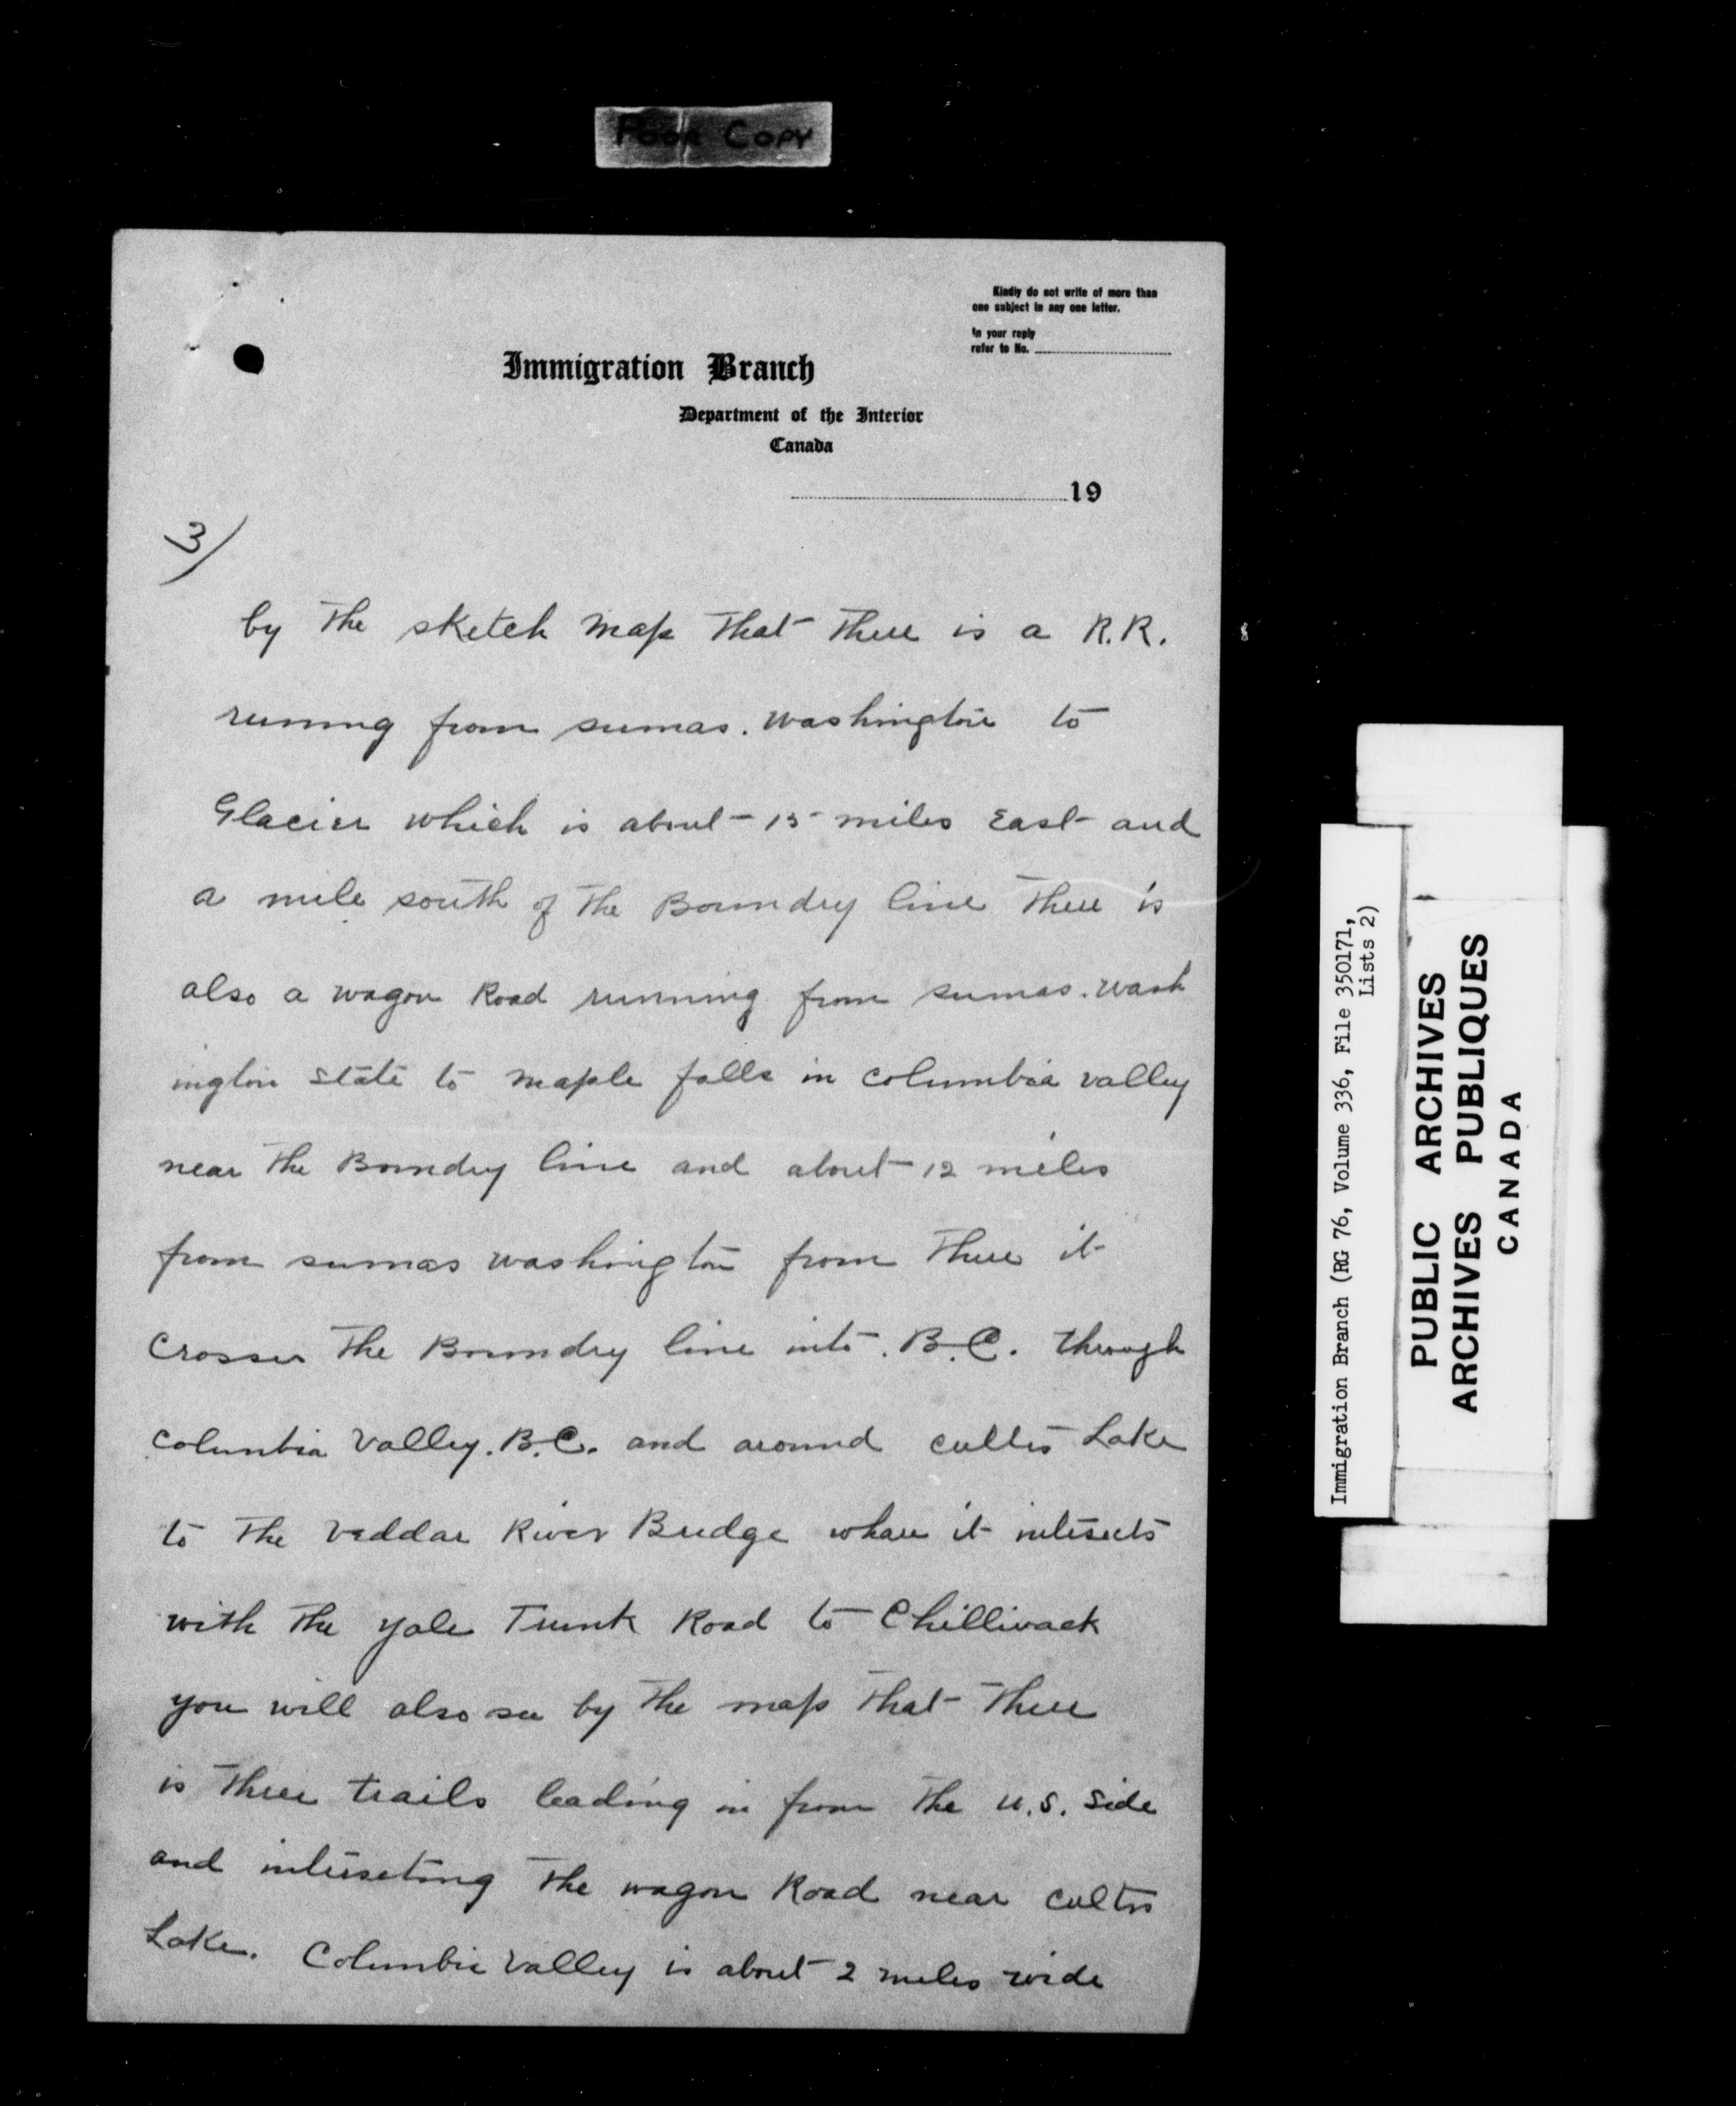 Poor Copy
Kindly do not write of more than
one subject in any one letter.
In your reply
refer to No.
Immigration Branch
Department of the Interior
Canada
19
3/
by the sketch map that there is a R.R.
runing from sumas. Washington to
Glacier which is about 15 miles East and
a mile south of the Boundry line there is
also a wagon Road running from sumas. Wash
ington State to maple falls in columbia valley
near the Boundry line and about 12 miles
from sumas washington from there it
Crosses the Boundry line into. B.C. through
columbia Valley. B.C. and around cultus Lake
to the Veddar River Bridge whare it intersects
with the yale Trunk Road to Chilliwack
you will also see by the map that there
is three trails leading in from the U.S. Side
and interseting the wagon Road near cultus
Lake. Columbia Valley is about 2 miles wide
Immigration Branch (RG 76, Volume 336, File 350171,
Lists 2)
PUBLIC ARCHIVES
ARCHIVES PUBLIQUES
CANADA